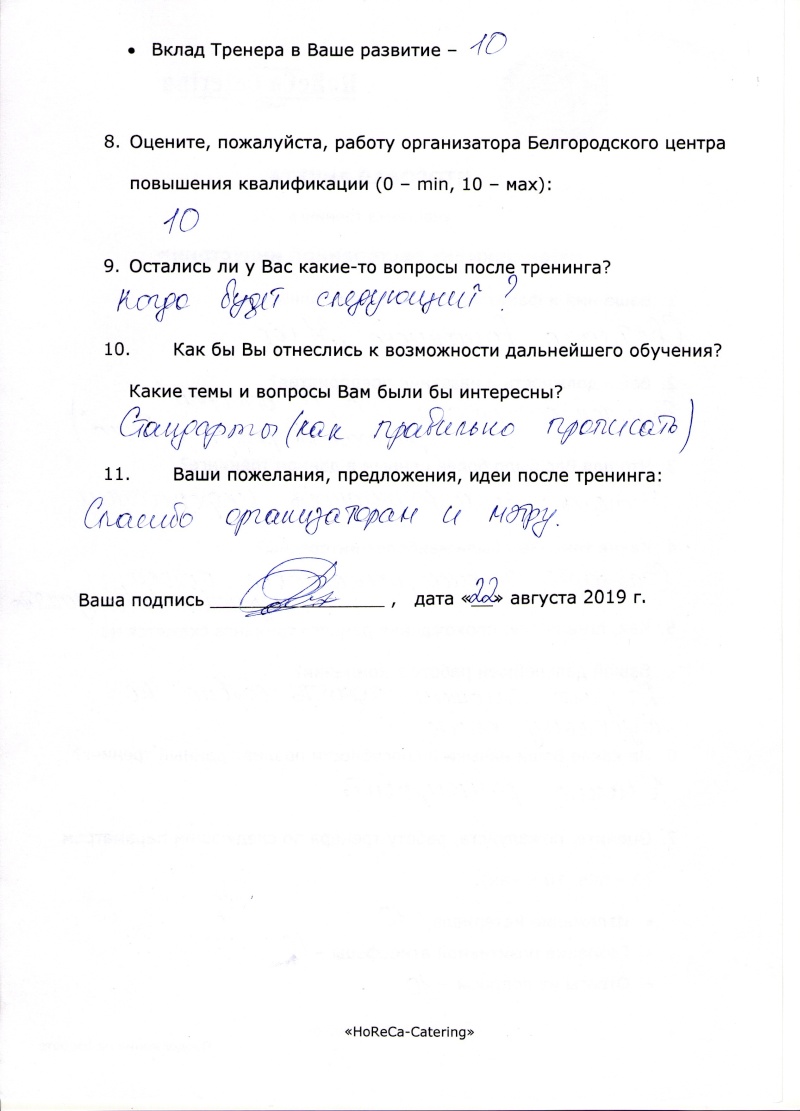 • Вклад Тренера в Ваше развитие – 10
8. Оцените, пожалуйста, работу организатора Белгородского центра
повышения квалификации (0 – min, 10 – мах):
10
9. Остались ли у Вас какие-то вопросы после тренинга?
Когда будет следующий?
10. Как бы Вы отнеслись к возможности дальнейшего обучения?
Какие темы и вопросы Вам были бы интересны?
Стандарты (как правильно прописать)
11. Ваши пожелания, предложения, идеи после тренинга:
Спасибо организаторам и мэтру.
Ваша подпись ________________ , дата «22» августа 2019 г.
«HoReCa-Catering»